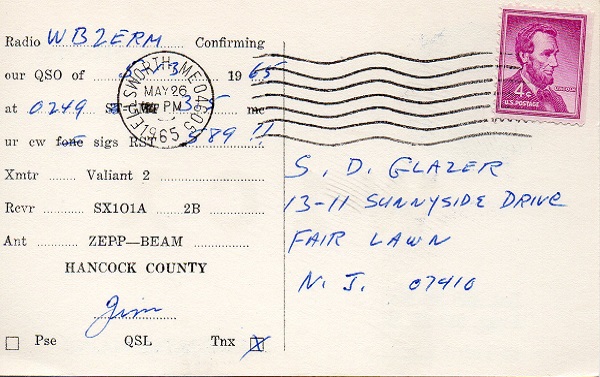 Radio WB2ERM Confirming
our QSO of 1965
at 0249 3.5 mc
ur cw fone sigs RST 589 !!
Xmtr Valiant 2
Rcvr SX101A 2B
Ant ZEPP—BEAM
HANCOCK COUNTY
Jim
Pse QSL Tnx X
ELLSWORTH, ME. 04605
MAY 26
PM
1965
4¢
U.S. POSTAGE
LINCOLN
S. D. GLAZER
13-11 SUNNYSIDE DRIVE
FAIR LAWN
N. J. 07410